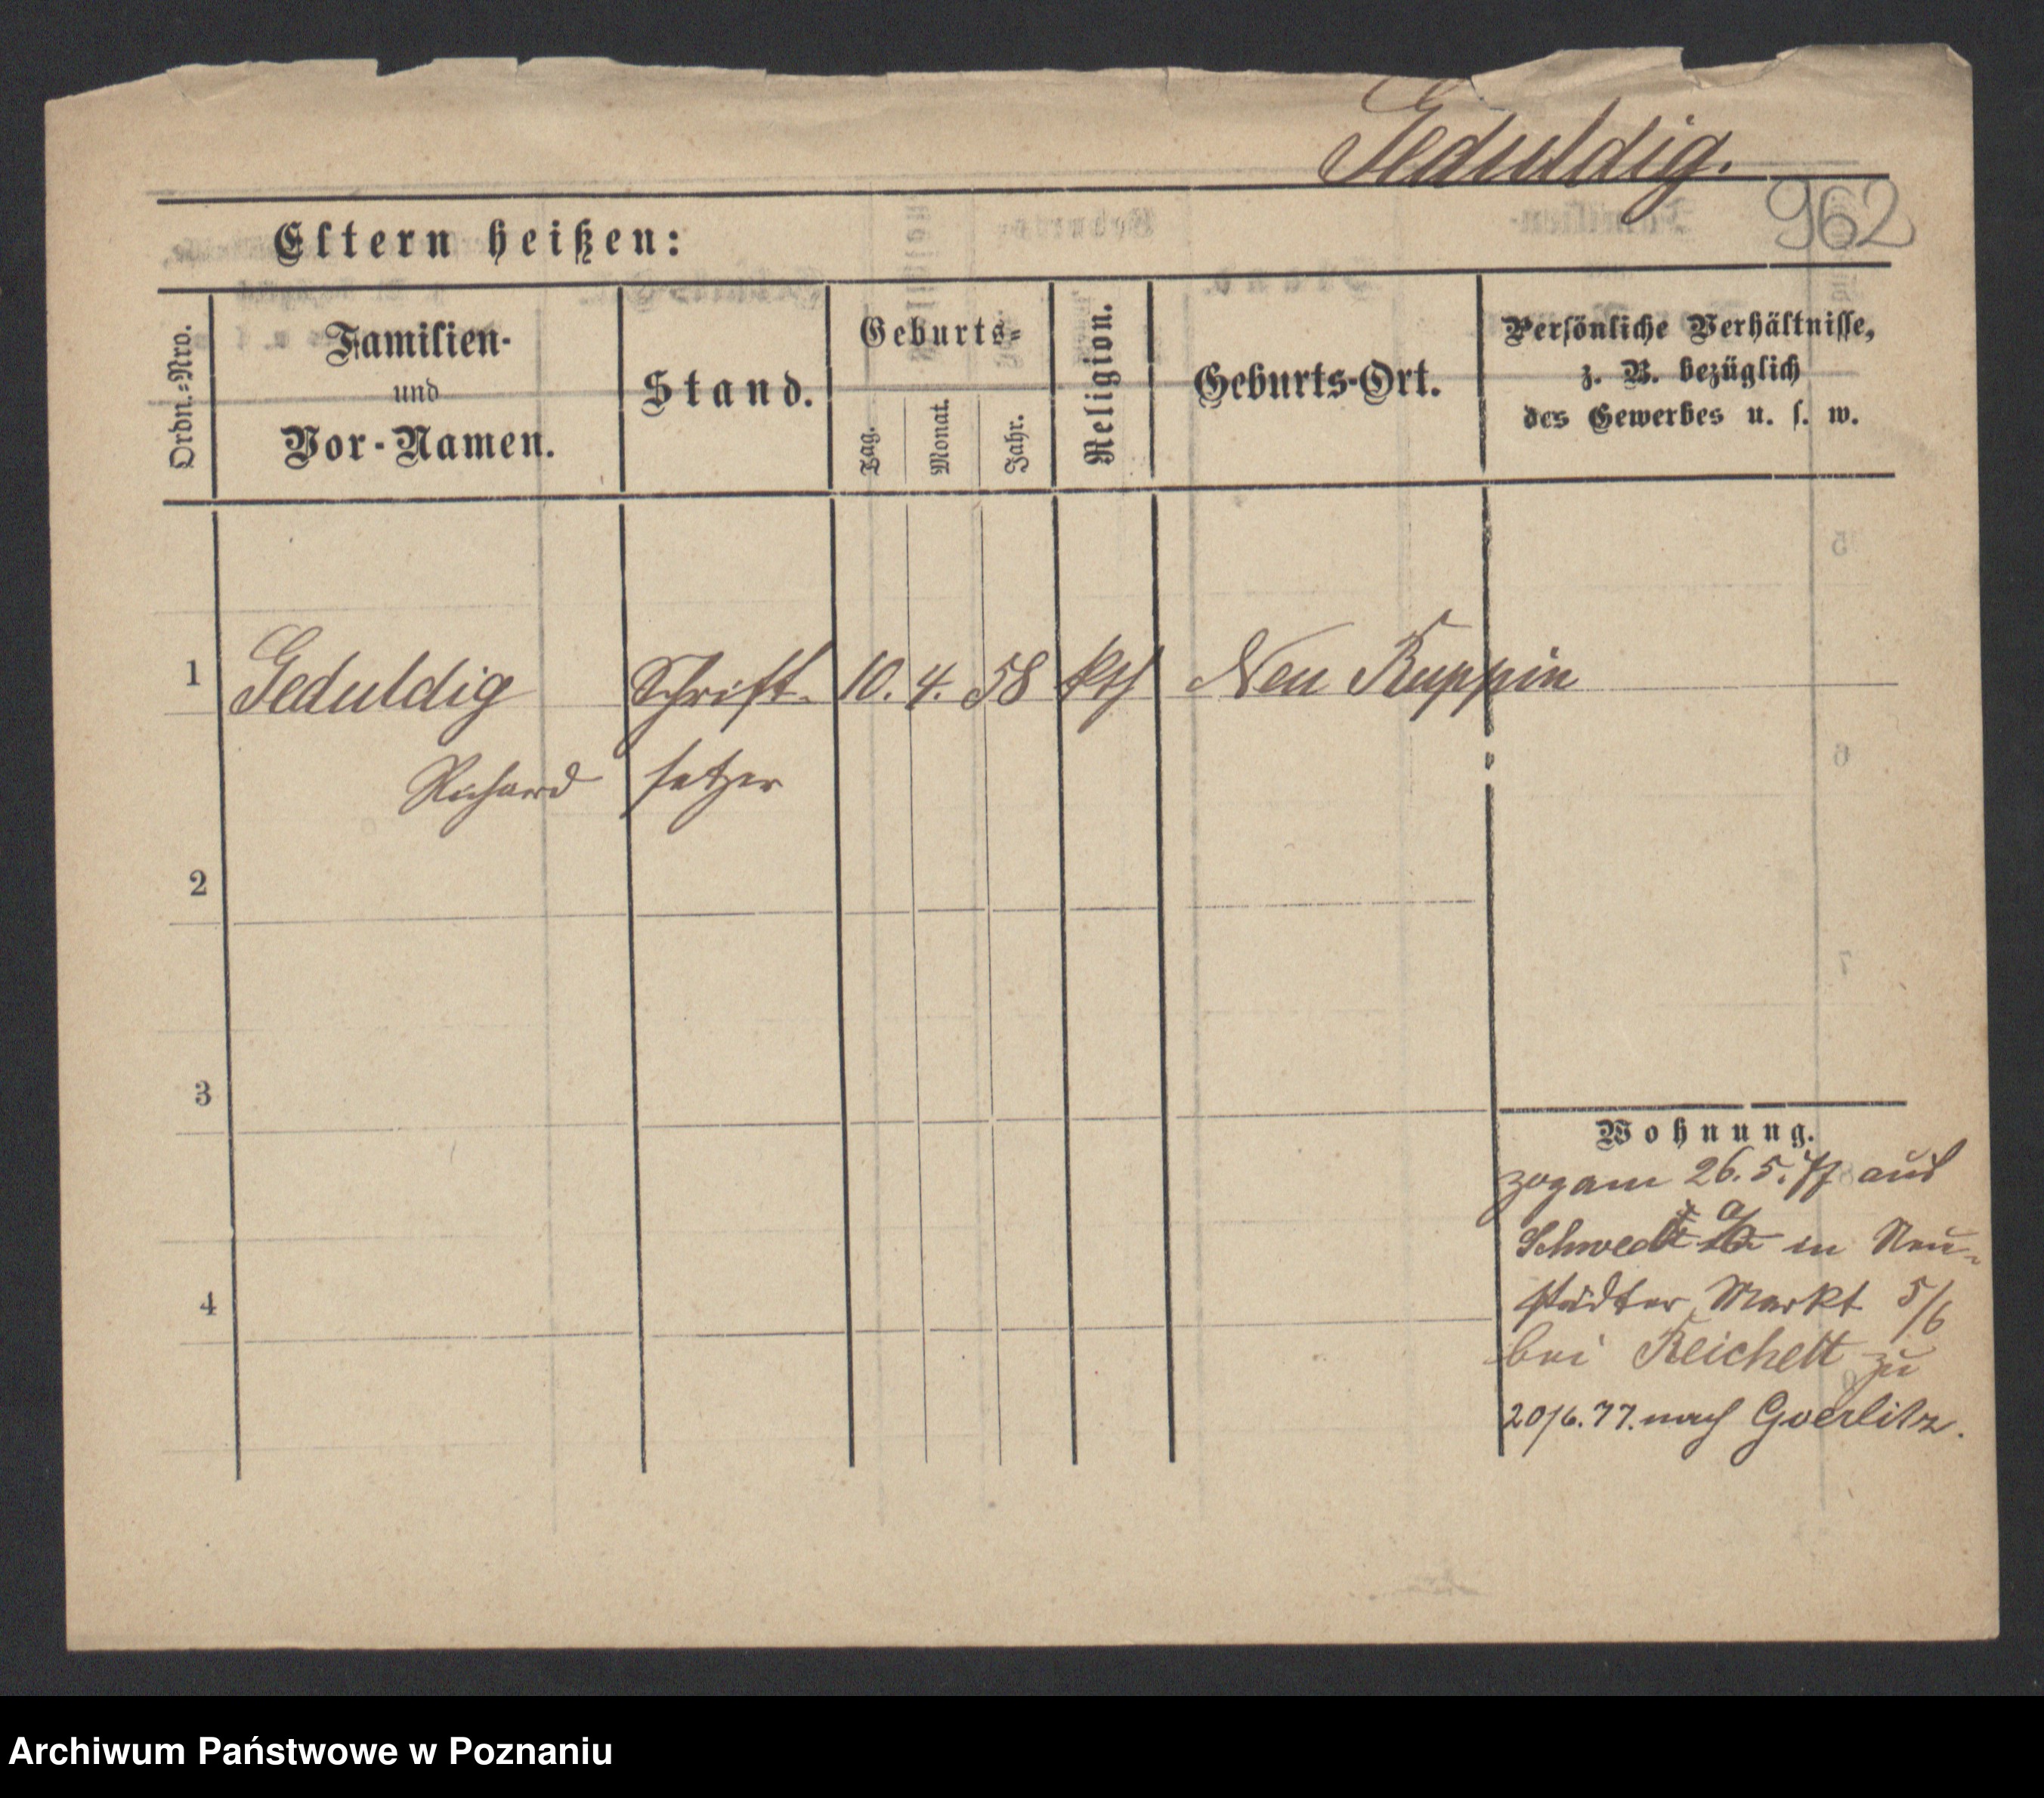 Geduldig.
962
Eltern heißen:
Ordn.=Nro.
Familien-
und
Vor-Namen.
Stand.
Geburts=
Tag.
Monat.
Jahr.
Religion.
Geburts-Ort.
Persönliche Verhältnisse,
z. B. bezüglich
des Gewerbes u. s. w.
1 Geduldig Schrift- 10. 4. 58 kth Neu Ruppin
Richard setzer
2
3
4
Wohnung.
zog am 26. 5. 77 aus
Schwedt a/O in Neu-
städter Markt 5/6
bei Reichelt zu
20/6. 77. nach Goerlitz.
Archiwum Państwowe w Poznaniu